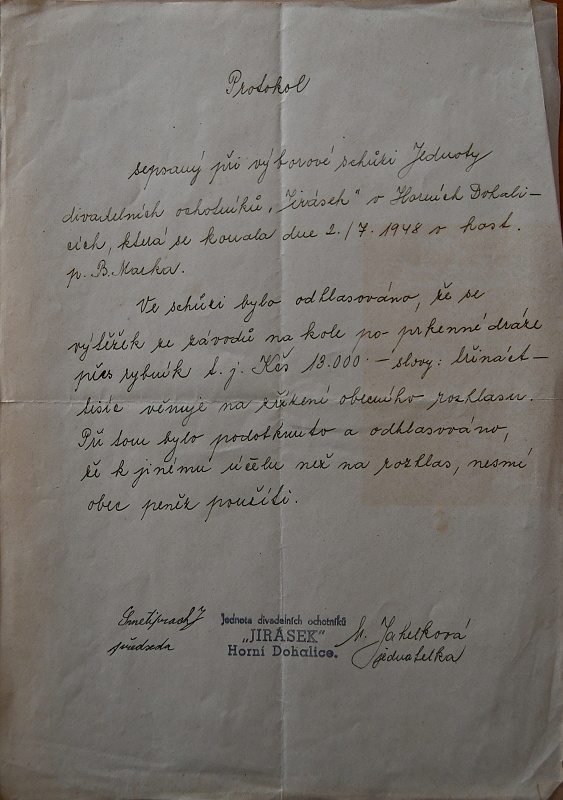 Protokol
sepsaný při výborové schůzi Jednoty
divadelních ochotníků „Jirásek" v Horních Dohali-
cích, která se konala dne 2./7. 1948 v host.
p. B. Macka.
Ve schůzi bylo odhlasováno, že se
výtěžek ze závodů na kole po prkenné dráze
přes rybník t. j. Kčs 13.000·— slovy: třináct-
tisíc věnuje na zřízení obecního rozhlasu.
Při tom bylo podotknuto a odhlasováno,
že k jinému účelu než na rozhlas, nesmí
obec peněz použíti.
Smetiprach J
předseda
Jednota divadelních ochotníků
„JIRÁSEK"
Horní Dohalice.
M. Jahelková
jednatelka